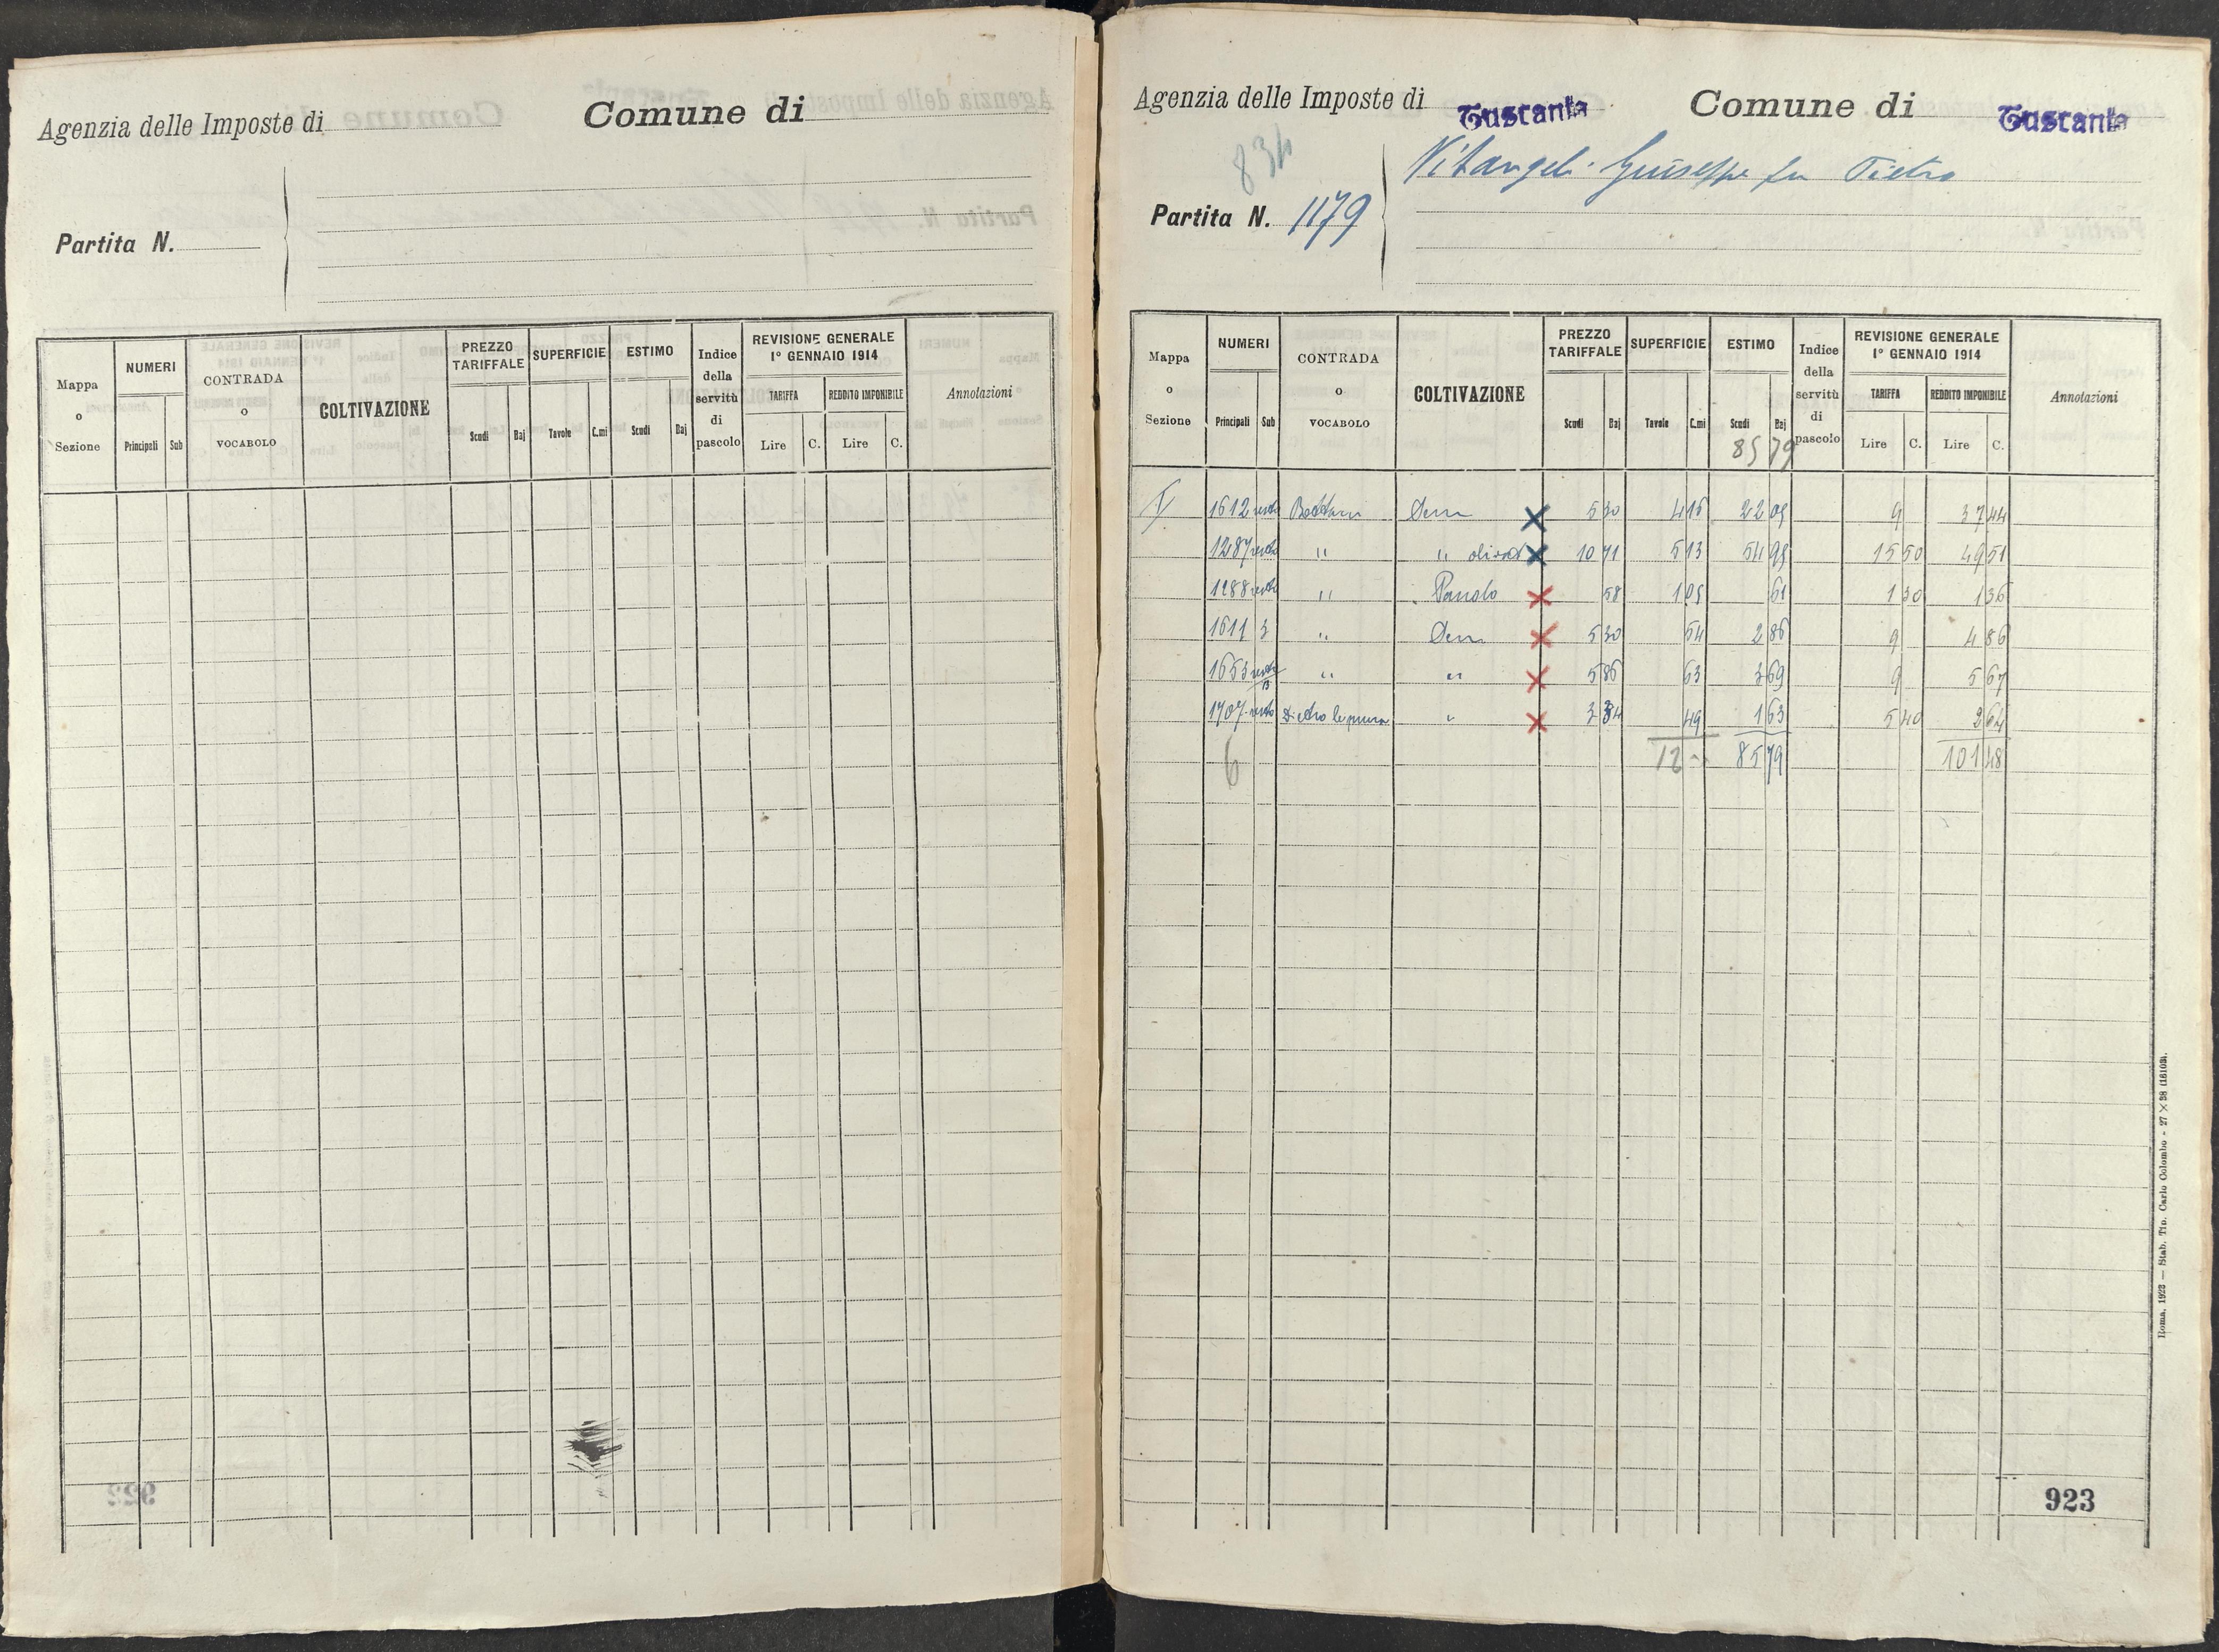 Agenzia delle Imposte di
Comune di
Partita N.
Mappa o Sezione
NUMERI
Principali Sub
CONTRADA o VOCABOLO
COLTIVAZIONE
PREZZO TARIFFALE
Scudi Baj
SUPERFICIE
Tavole C.mi
ESTIMO
Scudi Baj
Indice della servitù di pascolo
REVISIONE GENERALE
1° GENNAIO 1914
TARIFFA
Lire C.
REDDITO IMPONIBILE
Lire C.
Annotazioni
Agenzia delle Imposte di Tuscania
Comune di Tuscania
834
Partita N. 1179
Vitangeli Giuseppe fu Pietro
Mappa o Sezione
NUMERI
Principali Sub
CONTRADA o VOCABOLO
COLTIVAZIONE
PREZZO TARIFFALE
Scudi Baj
SUPERFICIE
Tavole C.mi
ESTIMO
Scudi Baj
85 79
Indice della servitù di pascolo
REVISIONE GENERALE
1° GENNAIO 1914
TARIFFA
Lire C.
REDDITO IMPONIBILE
Lire C.
Annotazioni
1612 resto Sem X 5 30 4 16 22 05 9 37 44
1287 resto " " olivat X 10 71 5 13 54 95 15 50 49 51
1288 resto " Pascolo X 58 1 05 61 1 30 1 36
1611 3 " Sem X 5 30 54 2 86 9 4 86
1653 resto " " X 5 86 63 3 69 9 5 67
1707 resto Dietro le mura " X 3 34 49 1 63 5 40 2 64
6 12 - 85 79 101 48
923
Roma, 1923 — Stab. Tip. Carlo Colombo - 27 × 38 (16103).